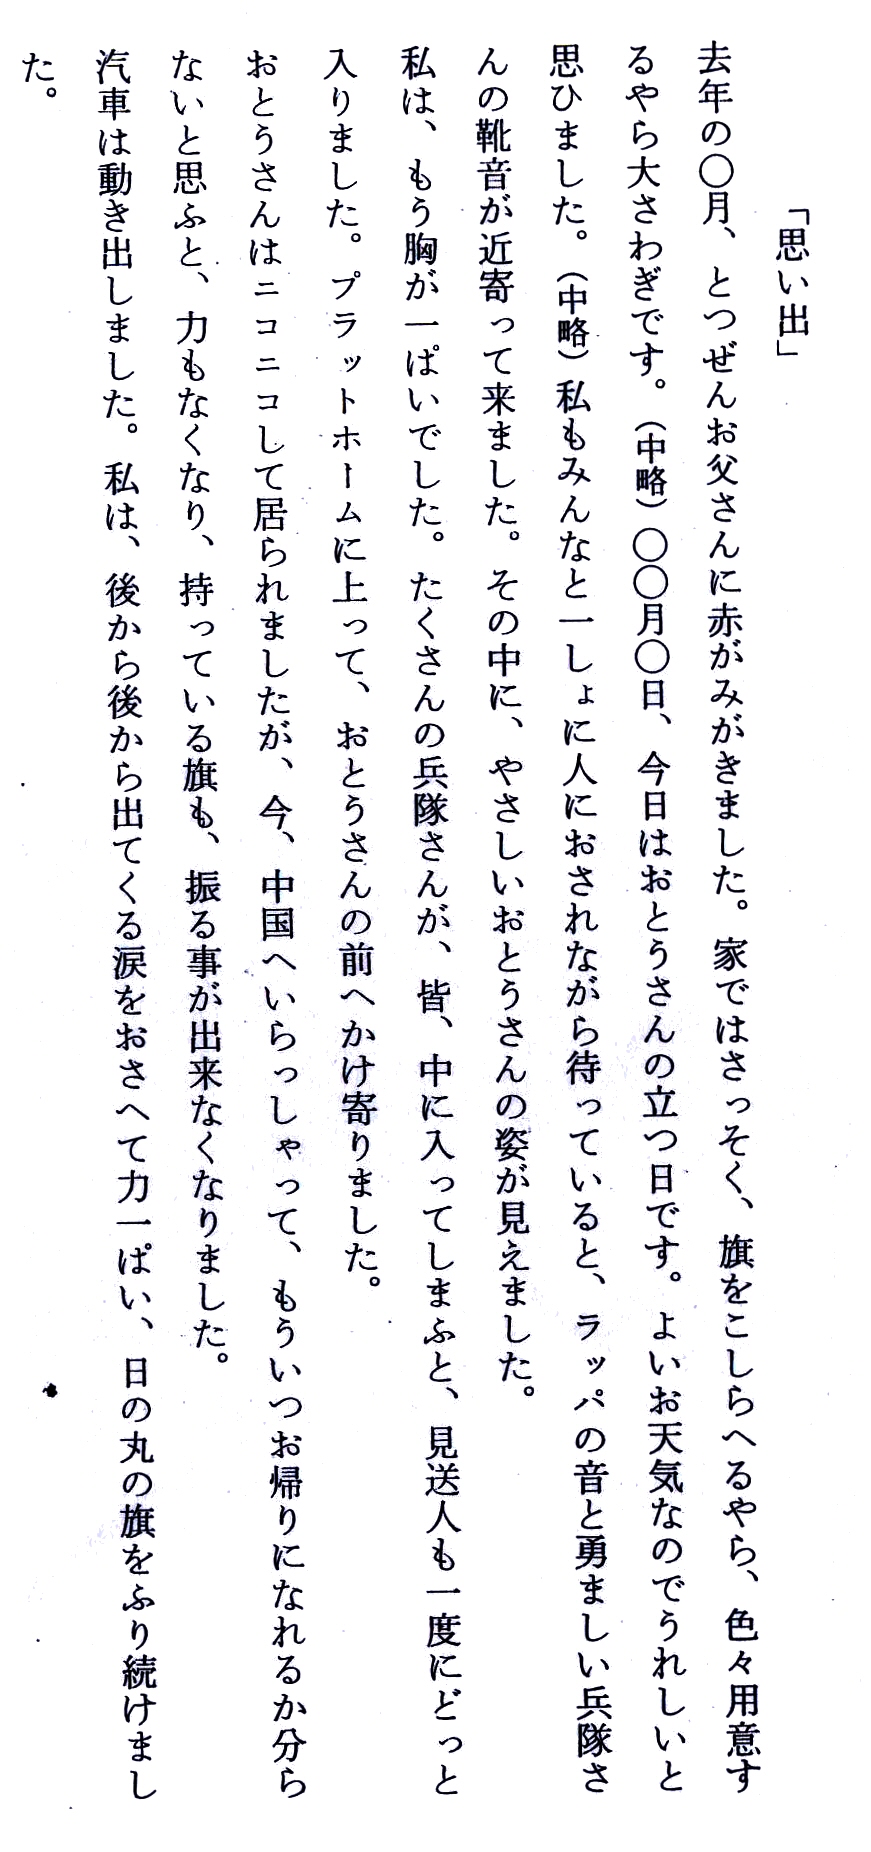 「思い出」
去年の〇月、とつぜんお父さんに赤がみがきました。家ではさっそく、旗をこしらへるやら、色々用意す
るやら大さわぎです。(中略)〇〇月〇日、今日はおとうさんの立つ日です。よいお天気なのでうれしいと
思ひました。(中略)私もみんなと一しょに人におされながら待っていると、ラッパの音と勇ましい兵隊さ
んの靴音が近寄って来ました。その中に、やさしいおとうさんの姿が見えました。
私は、もう胸が一ぱいでした。たくさんの兵隊さんが、皆、中に入ってしまふと、見送人も一度にどっと
入りました。プラットホームに上って、おとうさんの前へかけ寄りました。
おとうさんはニコニコして居られましたが、今、中国へいらっしゃって、もういつお帰りになれるか分ら
ないと思ふと、力もなくなり、持っている旗も、振る事が出来なくなりました。
汽車は動き出しました。私は、後から後から出てくる涙をおさへて力一ぱい、日の丸の旗をふり続けまし
た。